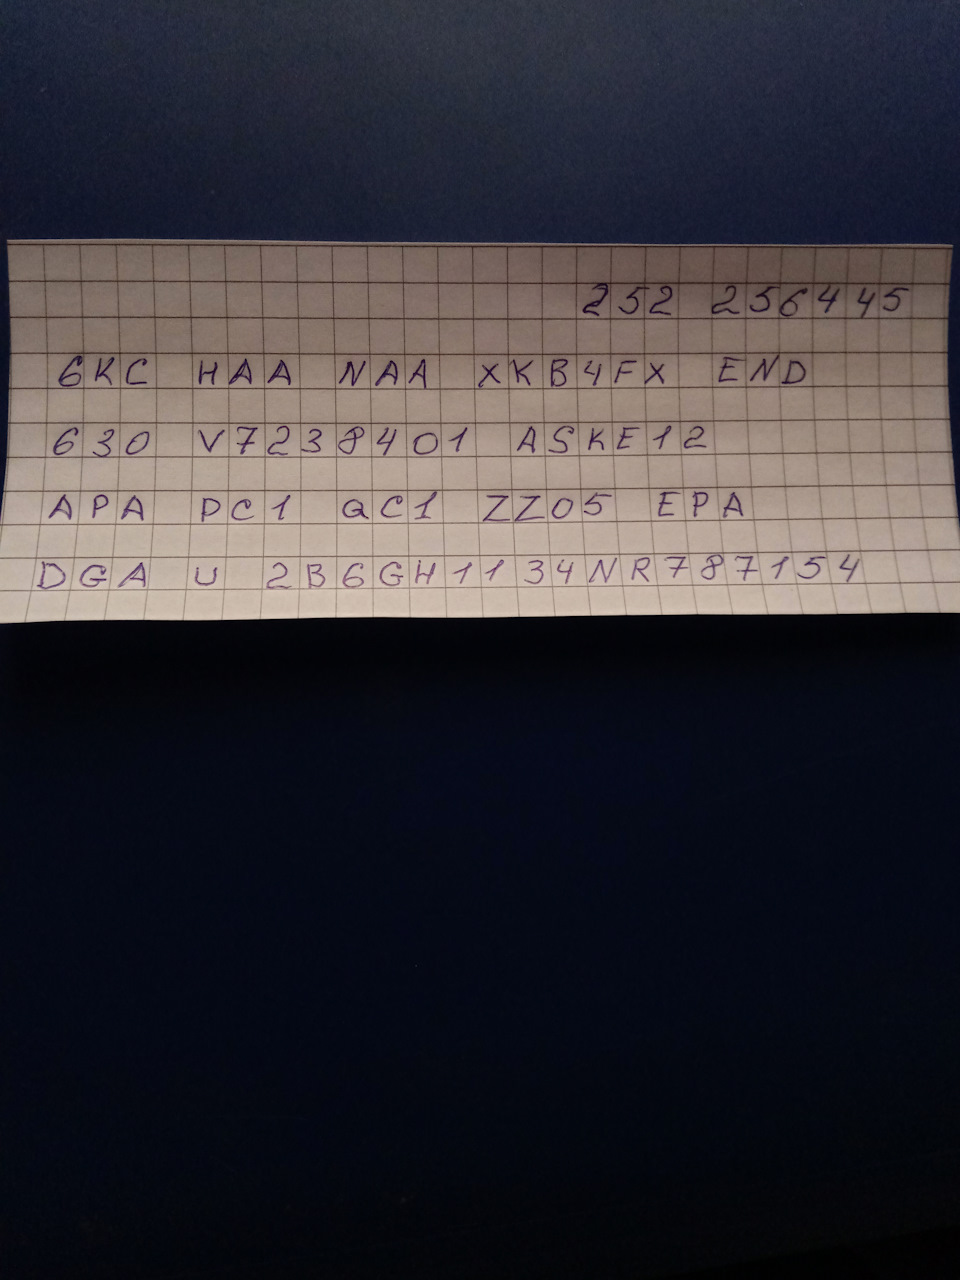 252 256445
6KC HAA NAA XKB4FX END
630 V7238401 ASKE12
APA PC1 QC1 ZZ05 EPA
DGA U 2B6GH1134NR787154